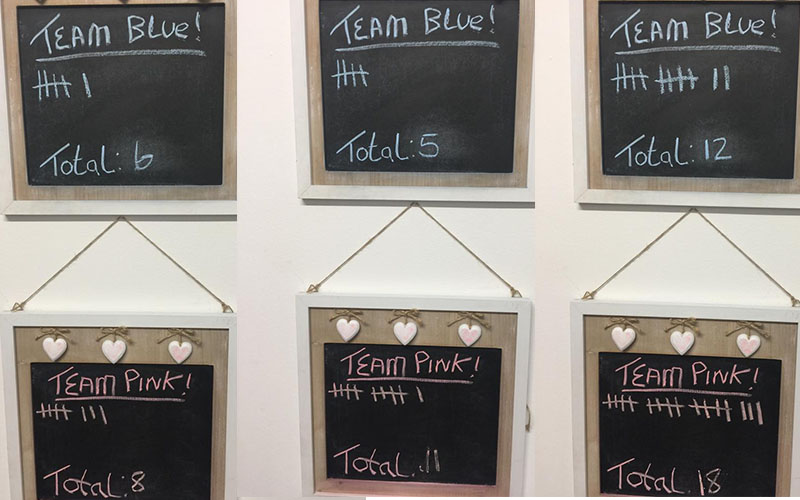 TEAM BLUE!
Total: 6
TEAM PINK!
Total: 8
TEAM BLUE!
Total: 5
TEAM PINK!
Total: 11
TEAM BLUE!
Total: 12
TEAM PINK!
Total: 18